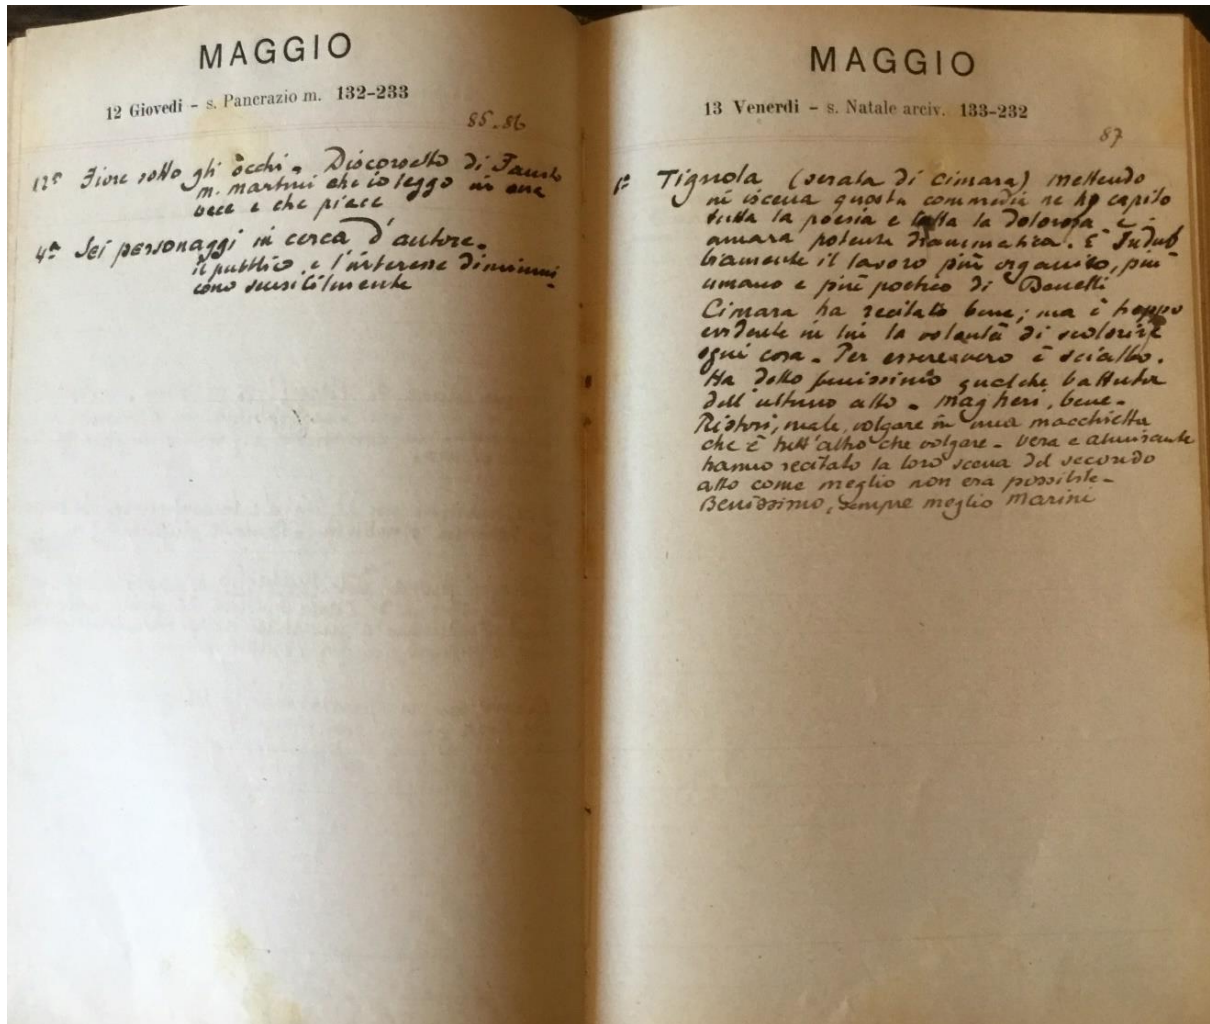 MAGGIO
12 Giovedì - s. Pancrazio m. 132-233
85.86
12ª Fiore sotto gli occhi. Discorsetto di Fausto
m. martini che io leggo in sua
vece e che piace
4ª Sei personaggi in cerca d'autore.
il pubblico e l'interesse diminui-
scono sensibilmente
MAGGIO
13 Venerdì - s. Natale arciv. 133-232
87
1ª Tignola (serata di Cimara) mettendo
in iscena questa commedia ne ho capito
tutta la poesia e tutta la dolorosa e
amara potenza drammatica. È Indub
biamente il lavoro più organico, più
umano e più poetico di Benelli
Cimara ha recitato bene; ma è troppo
evidente in lui la volontà di scolorire
ogni cosa. Per essere vero è scialbo.
Ha detto benissimo qualche battuta
dell'ultimo atto. Magheri, bene.
Ristori, male, volgare in una macchietta
che è tutt'altro che volgare. Vera e Almirante
hanno recitato la loro scena del secondo
atto come meglio non era possibile.
Benissimo, sempre meglio Marini